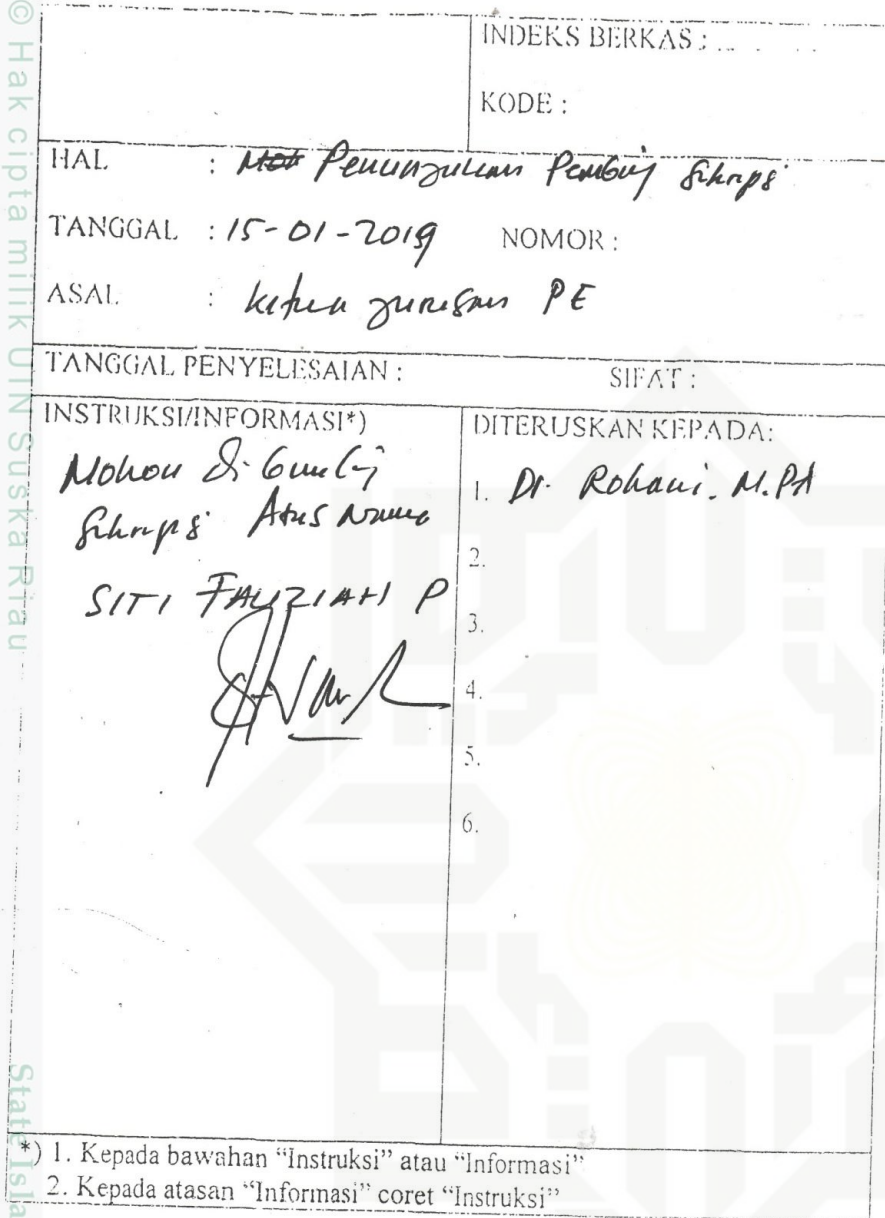 © Hak cipta milik UIN Suska Riau
State Isla
INDEKS BERKAS :
KODE :
HAL : Penunjukan Pembimbing Skripsi
TANGGAL : 15-01-2019 NOMOR :
ASAL : Ketua Jurusan PE
TANGGAL PENYELESAIAN : SIFAT :
INSTRUKSI/INFORMASI*)
Mohon Di bimbing
Skripsi Atas Nama
SITI FAUZIAH P
DITERUSKAN KEPADA:
1. Dr. Rohani. M.Pd
2.
3.
4.
5.
6.
*) 1. Kepada bawahan “Instruksi” atau “Informasi”
2. Kepada atasan “Informasi” coret “Instruksi”